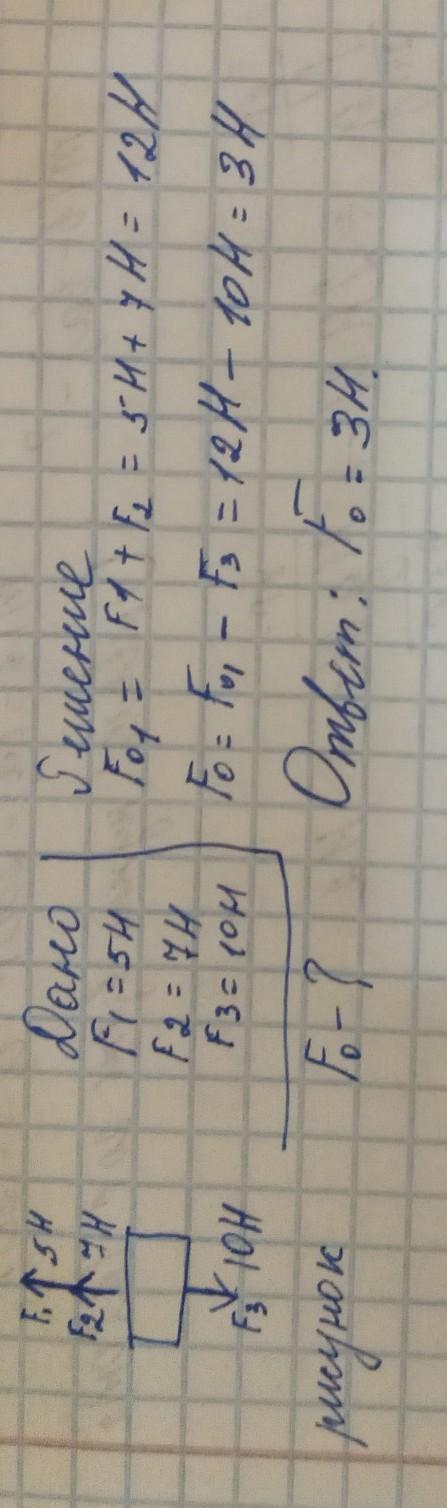 F₁ 5Н
F₂ 7Н
F₃ 10Н
рисунок
Дано
F₁ = 5Н
F₂ = 7Н
F₃ = 10Н
F₀ - ?
Решение
F₀₁ = F1 + F₂ = 5Н + 7Н = 12Н
F₀ = F₀₁ - F₃ = 12Н - 10Н = 3Н
Ответ: F₀ = 3Н.